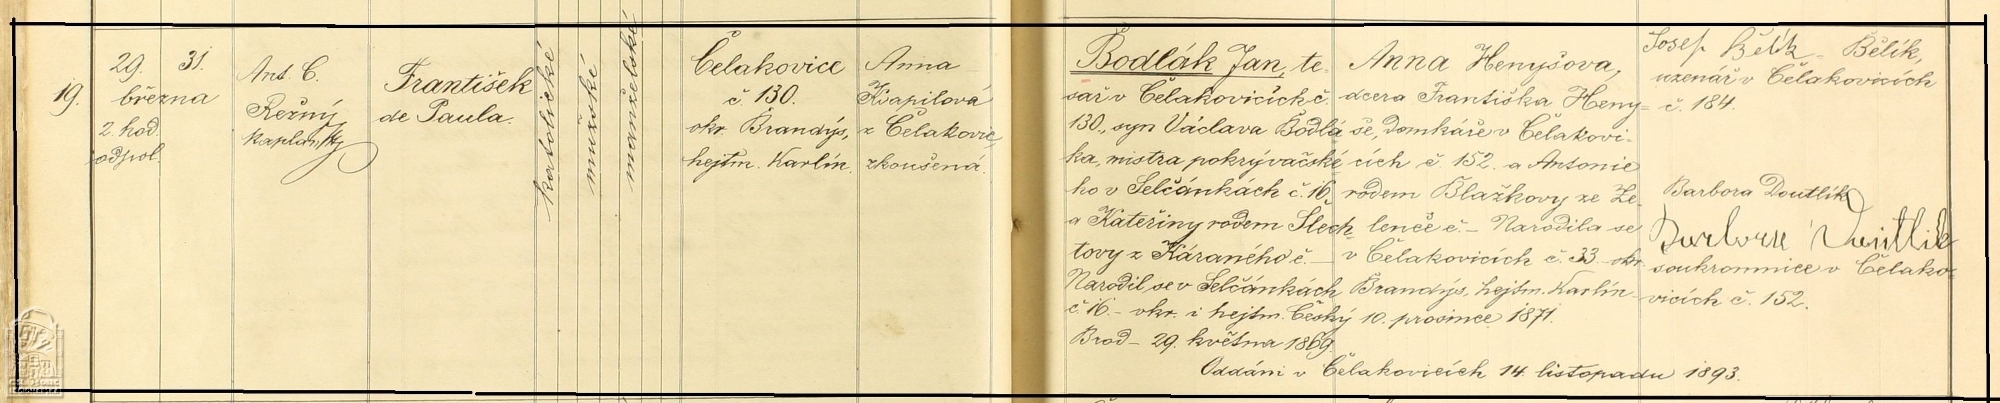 19.
29. 31.
března
2 hod.
odpol.
Ant. C.
Režný
kaplan
František
de Paula.
katolické
mužské
manželské
Čelakovice
č. 130.
okr. Brandýs,
hejtm. Karlín.
Anna
Kvapilová
z Čelakovic,
zkoušená.
Bodlák Jan, te-
sař v Čelakovicích č.
130., syn Václava Bodlá
ka, mistra pokrývačské
ho v Selčánkách č. 16.
a Kateřiny rodem Šlech
tovy z Káraného č. —
Narodil se v Selčánkách
č. 16. – okr. i hejtm. Český
Brod – 29. května 1869.
Anna Henyšova,
dcera Františka Heny-
še, domkáře v Čelakovi-
cích č. 152. a Antonie
rodem Blažkovy ze Ze-
lenče č. – Narodila se
v Čelakovicích č. 33 okr.
Brandýs, hejtm. Karlín
10. prosince 1871.
Oddáni v Čelakovicích 14. listopadu 1893.
Josef Bělík - Bělík,
uzenář v Čelakovicích
č. 184.
Barbora Doutlík
soukromnice v Čelako-
vicích č. 152.